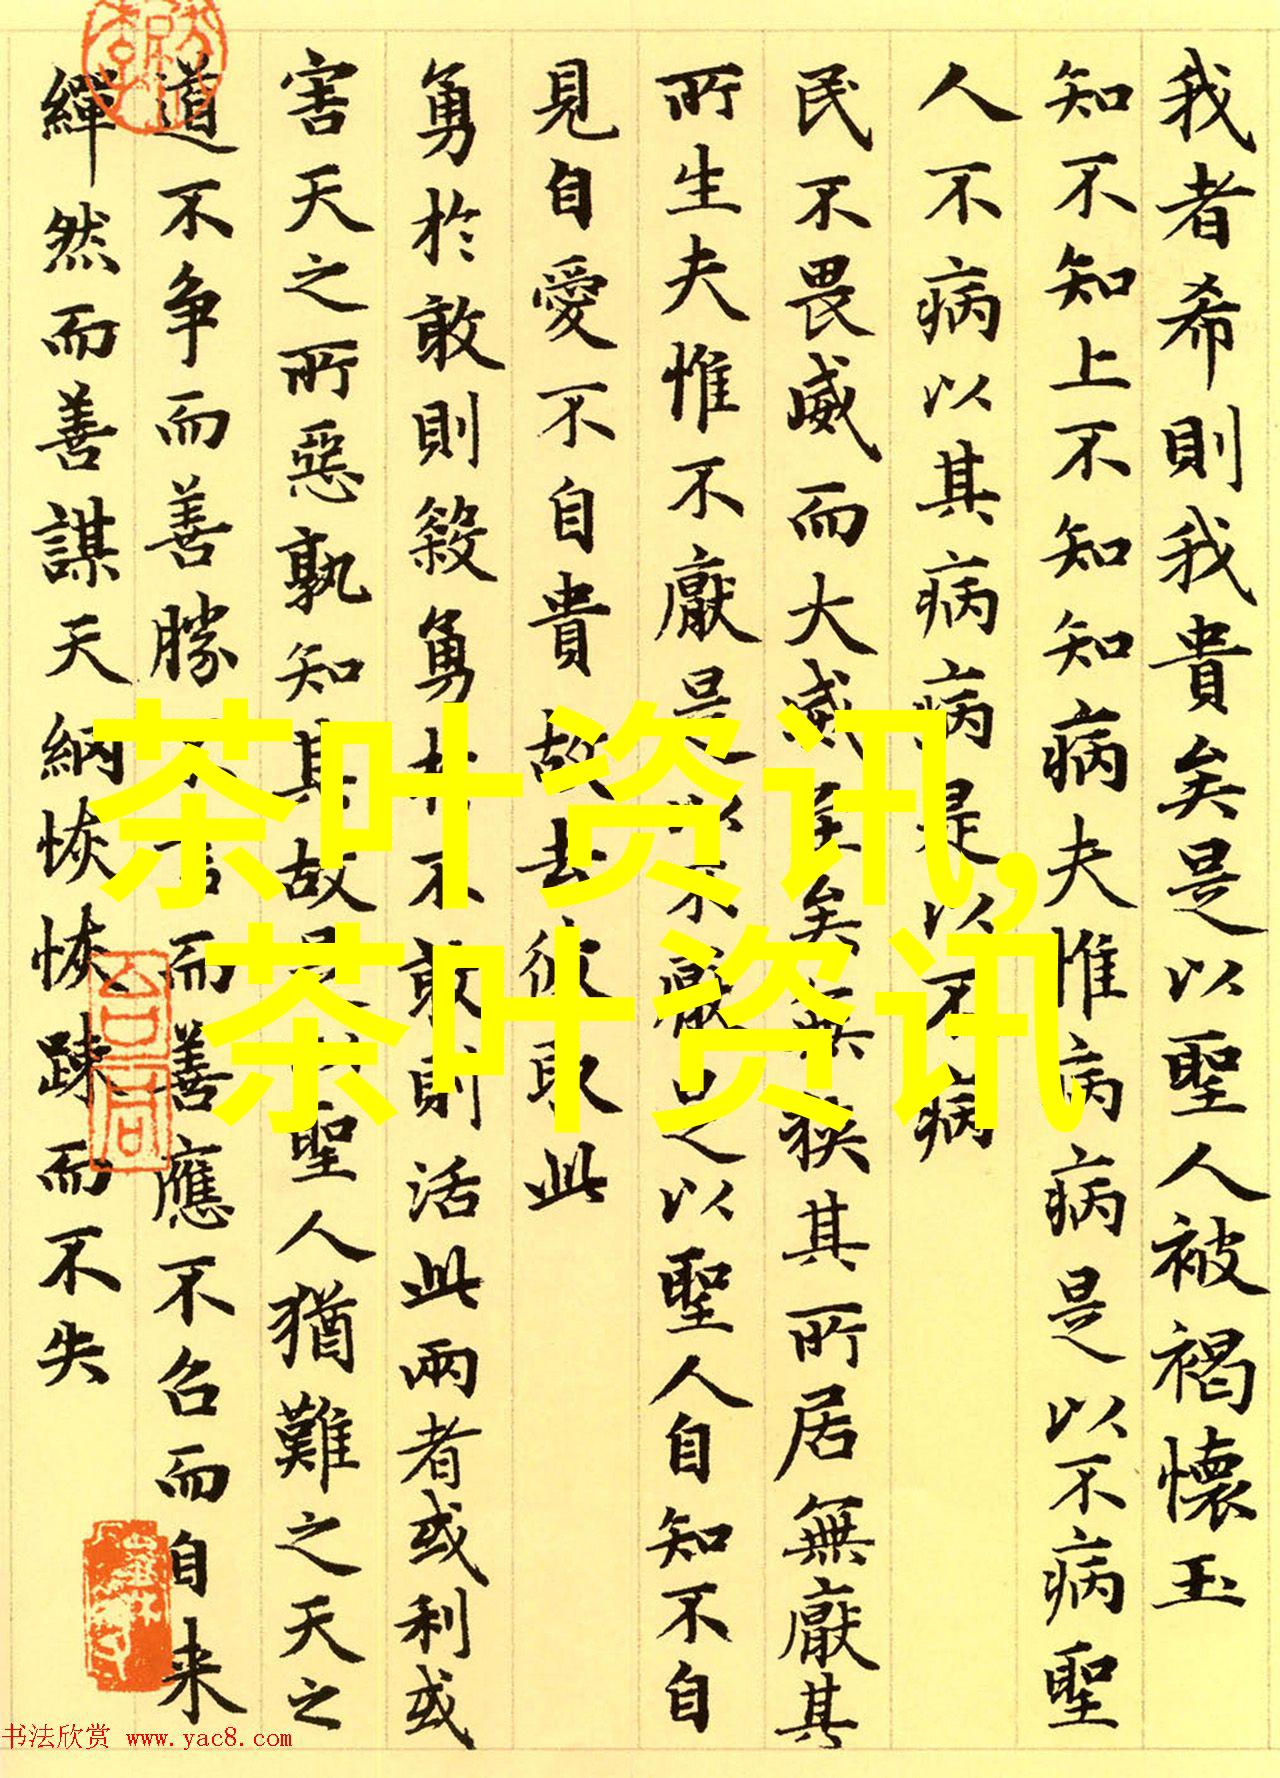 我者希則我貴矣是以聖人被褐懷玉
知不知上不知知病夫惟病病是以不病聖
人不病以其病病是以不病
民不畏威而大威至矣無狹其所居無厭其
所生夫惟不厭是以不厭是以聖人自知不自
見自愛不自貴故去彼取此
勇於敢則殺勇於不敢則活此兩者或利或
害天之所惡孰知其故是以聖人猶難之天之
道不争而善勝不言而善應不召而自来
繟然而善謀天網恢恢踈而不失
茶叶资讯,
茶叶资讯
书法欣赏 www.yac8.com